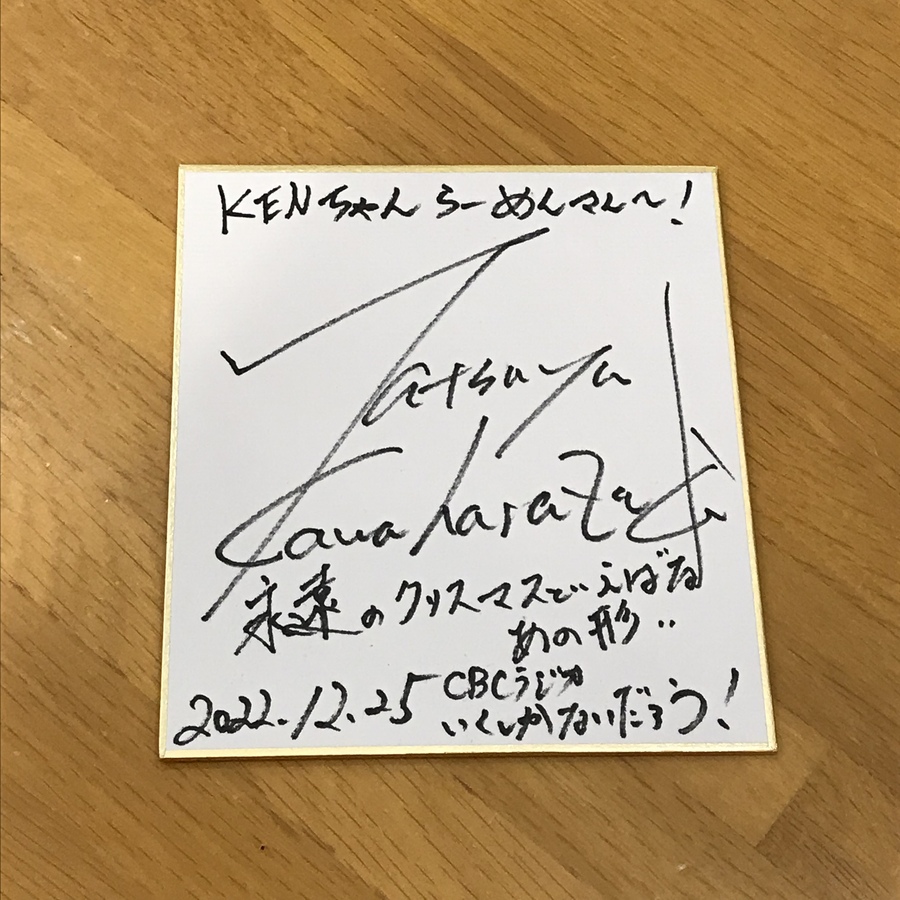 KENちゃんらーめんマン〜!
Tatsuya
Kawaharazaki
永遠のクリスマスといえばな
あの形‥
2022.12.25 CBCラジオ
いくしかないだろう!